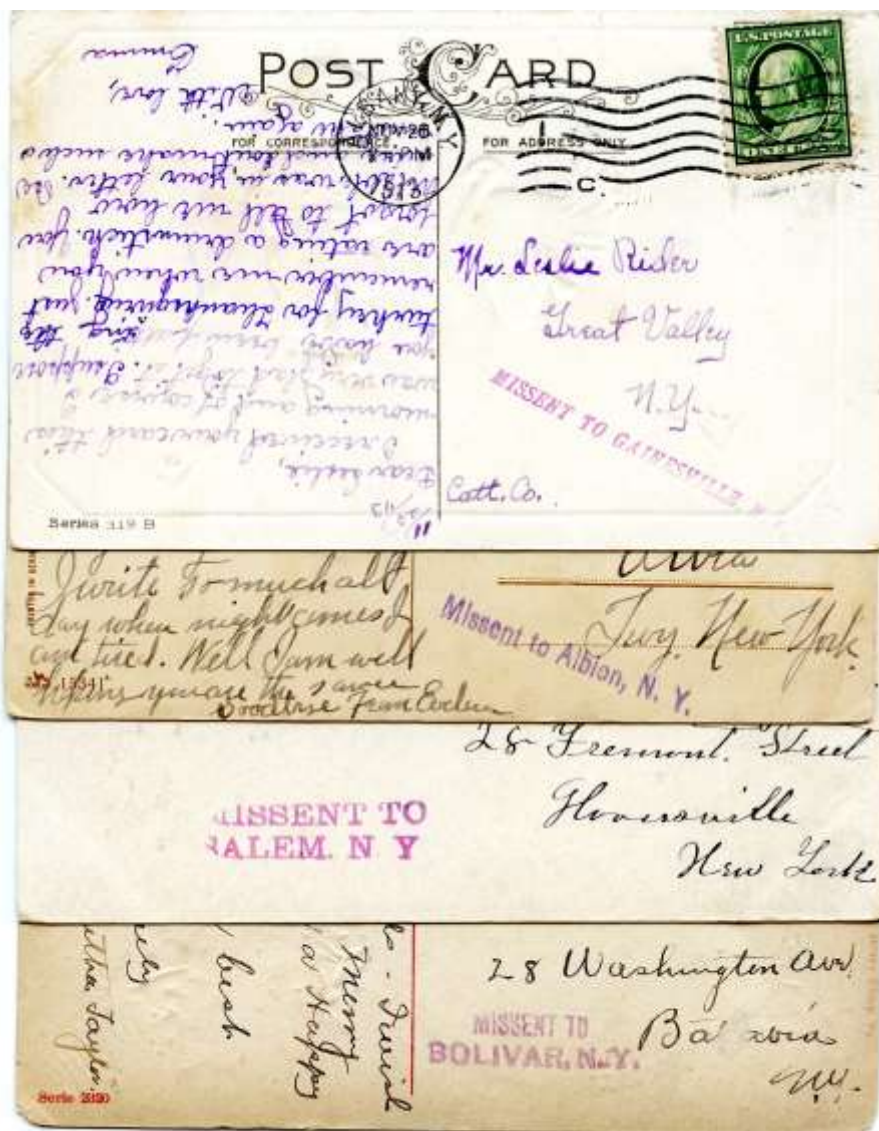 POST CARD
FOR CORRESPONDENCE
FOR ADDRESS ONLY
U.S. POSTAGE
ALBANY, N.Y.
NOV 25
1913
C
Mr. Leslie Rider
Great Valley
N.Y.
Catt. Co.
MISSENT TO GAINESVILLE, N.
Dear Leslie,
I received your card this
morning and of course I
was very glad to get it. I suppose
you have been the
turkey for Thanksgiving. Just
remember me when you
are eating a drumstick. You
forgot to tell me how
was in your letter.
make such
again.
With love,
Emma
Series 319 B
I write so much all
day when night comes I
am tired. Well I am well
hoping you are the same
Goodbye From Evelyn
Missent to Albion, N. Y.
New York.
28 Fremont. Street
Gloversville
New York
MISSENT TO
SALEM. N Y
I wish
Merry
a Happy
best
Taylor.
Serie 2020
28 Washington Ave.
Batavia
N.Y.
MISSENT TO
BOLIVAR, N.Y.